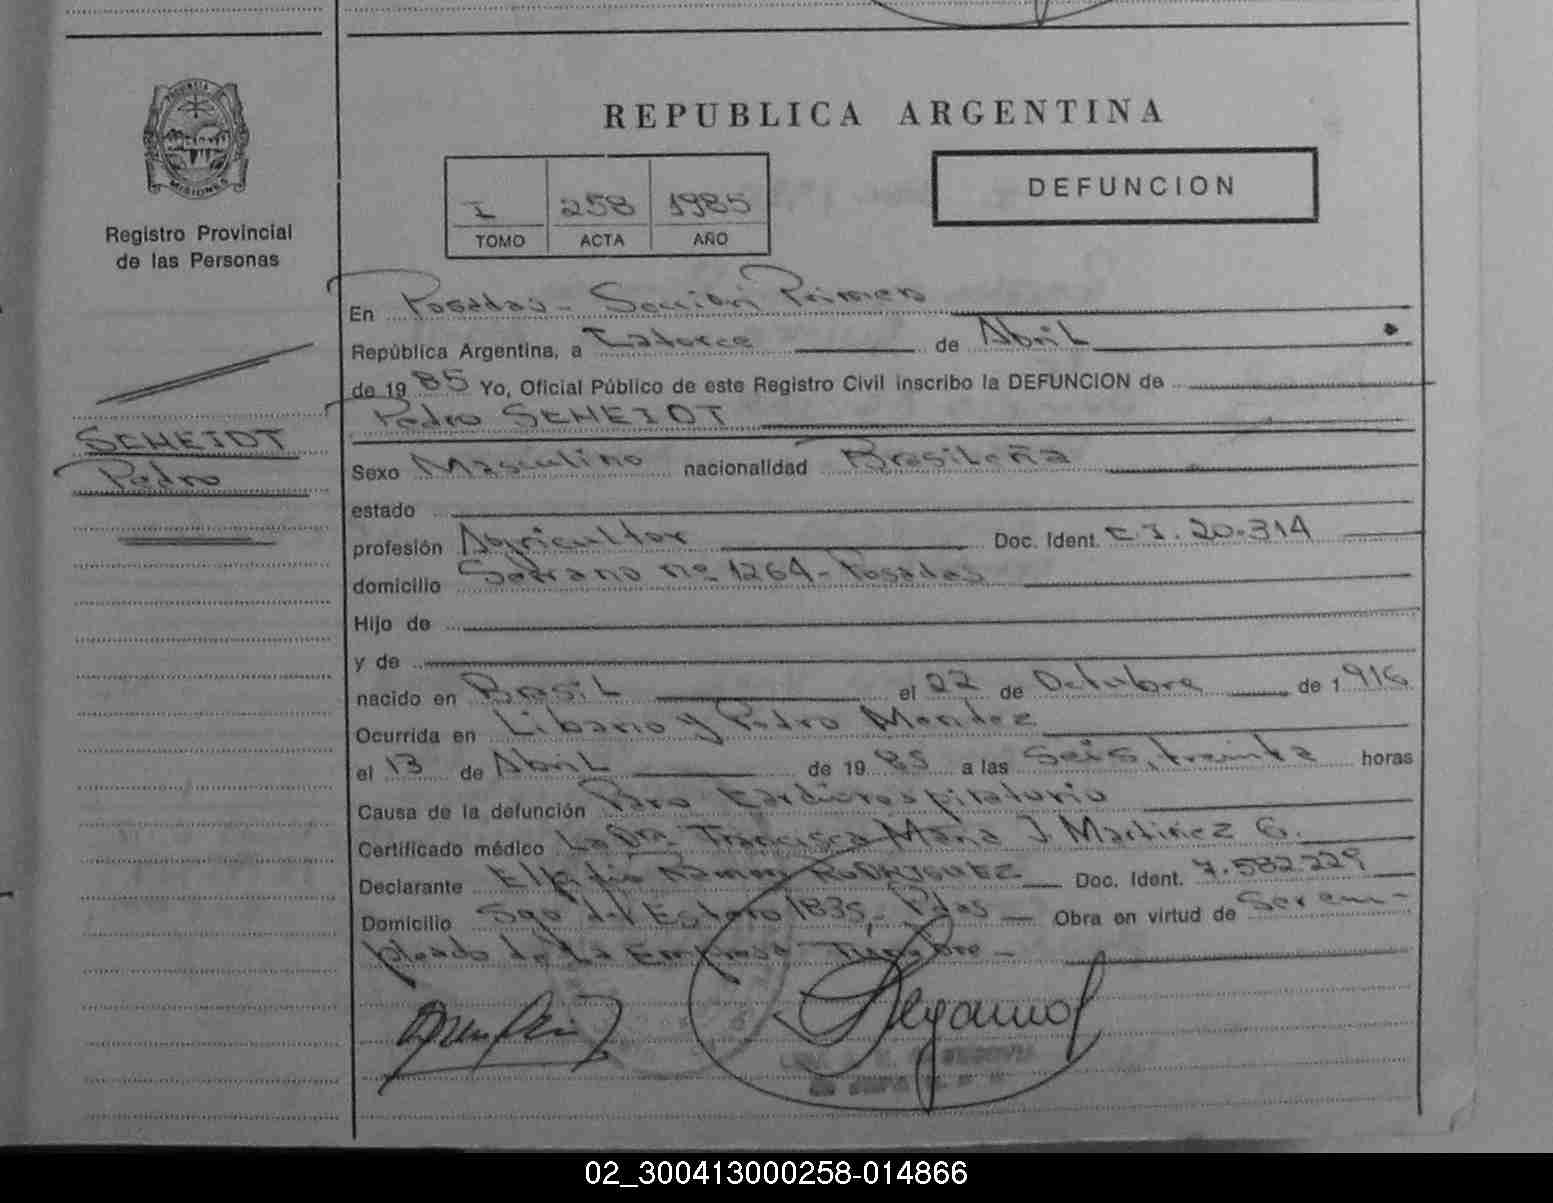 PROVINCIA DE
MISIONES
Registro Provincial
de las Personas
SCHEIDT
Pedro
REPUBLICA ARGENTINA
I 258 1985
TOMO ACTA AÑO
DEFUNCION
En Posadas - Sección Primera
República Argentina, a Catorce de Abril
de 1985 Yo, Oficial Público de este Registro Civil inscribo la DEFUNCION de
Pedro SCHEIDT
Sexo Masculino nacionalidad Brasileña
estado
profesión Agricultor Doc. Ident. C.I. 20.314
domicilio Serrano nº 1264 - Posadas
Hijo de
y de
nacido en Brasil el 22 de Octubre de 1916
Ocurrida en Libano y Pedro Mendez
el 13 de Abril de 1985 a las Seis, treinta horas
Causa de la defunción Paro Cardiorespiratorio
Certificado médico La Dra. Francisca María J Martinez G.
Declarante Ramon RODRIGUEZ Doc. Ident. 7.582.229
Domicilio Sgo del Estero 1835 - Pdas Obra en virtud de Ser em-
pleado de la Empresa Funebre -
02_300413000258-014866